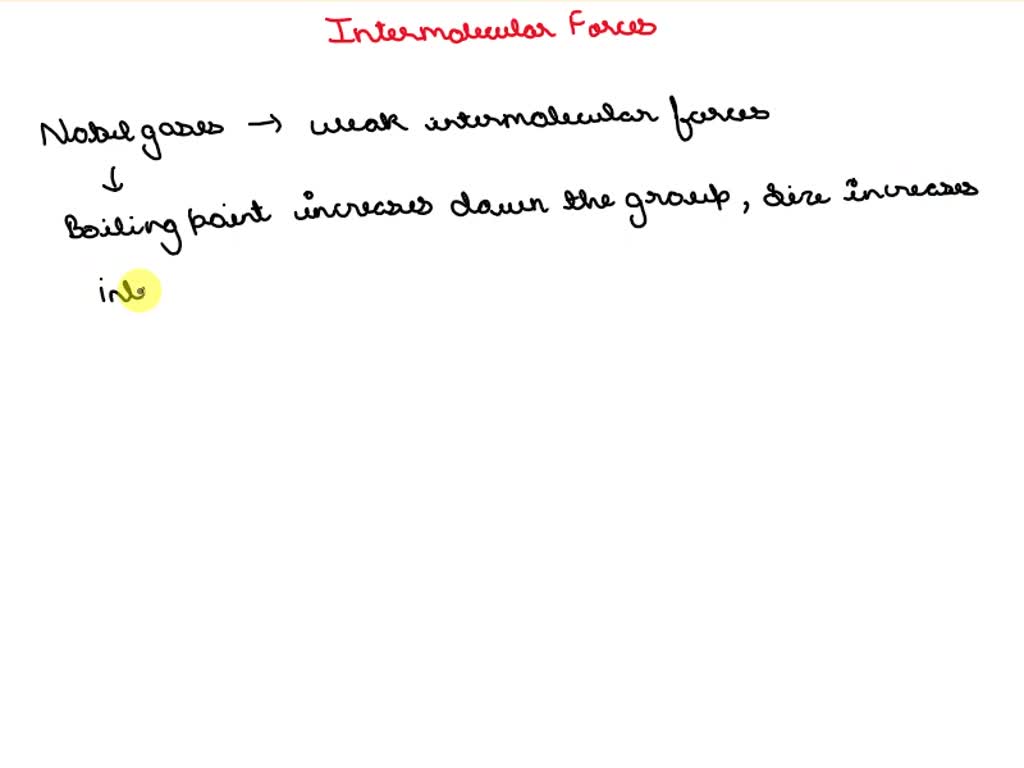 Intermolecular Forces
Nobel gases → weak intermolecular forces
↓
Boiling point increases down the group, size increases
int